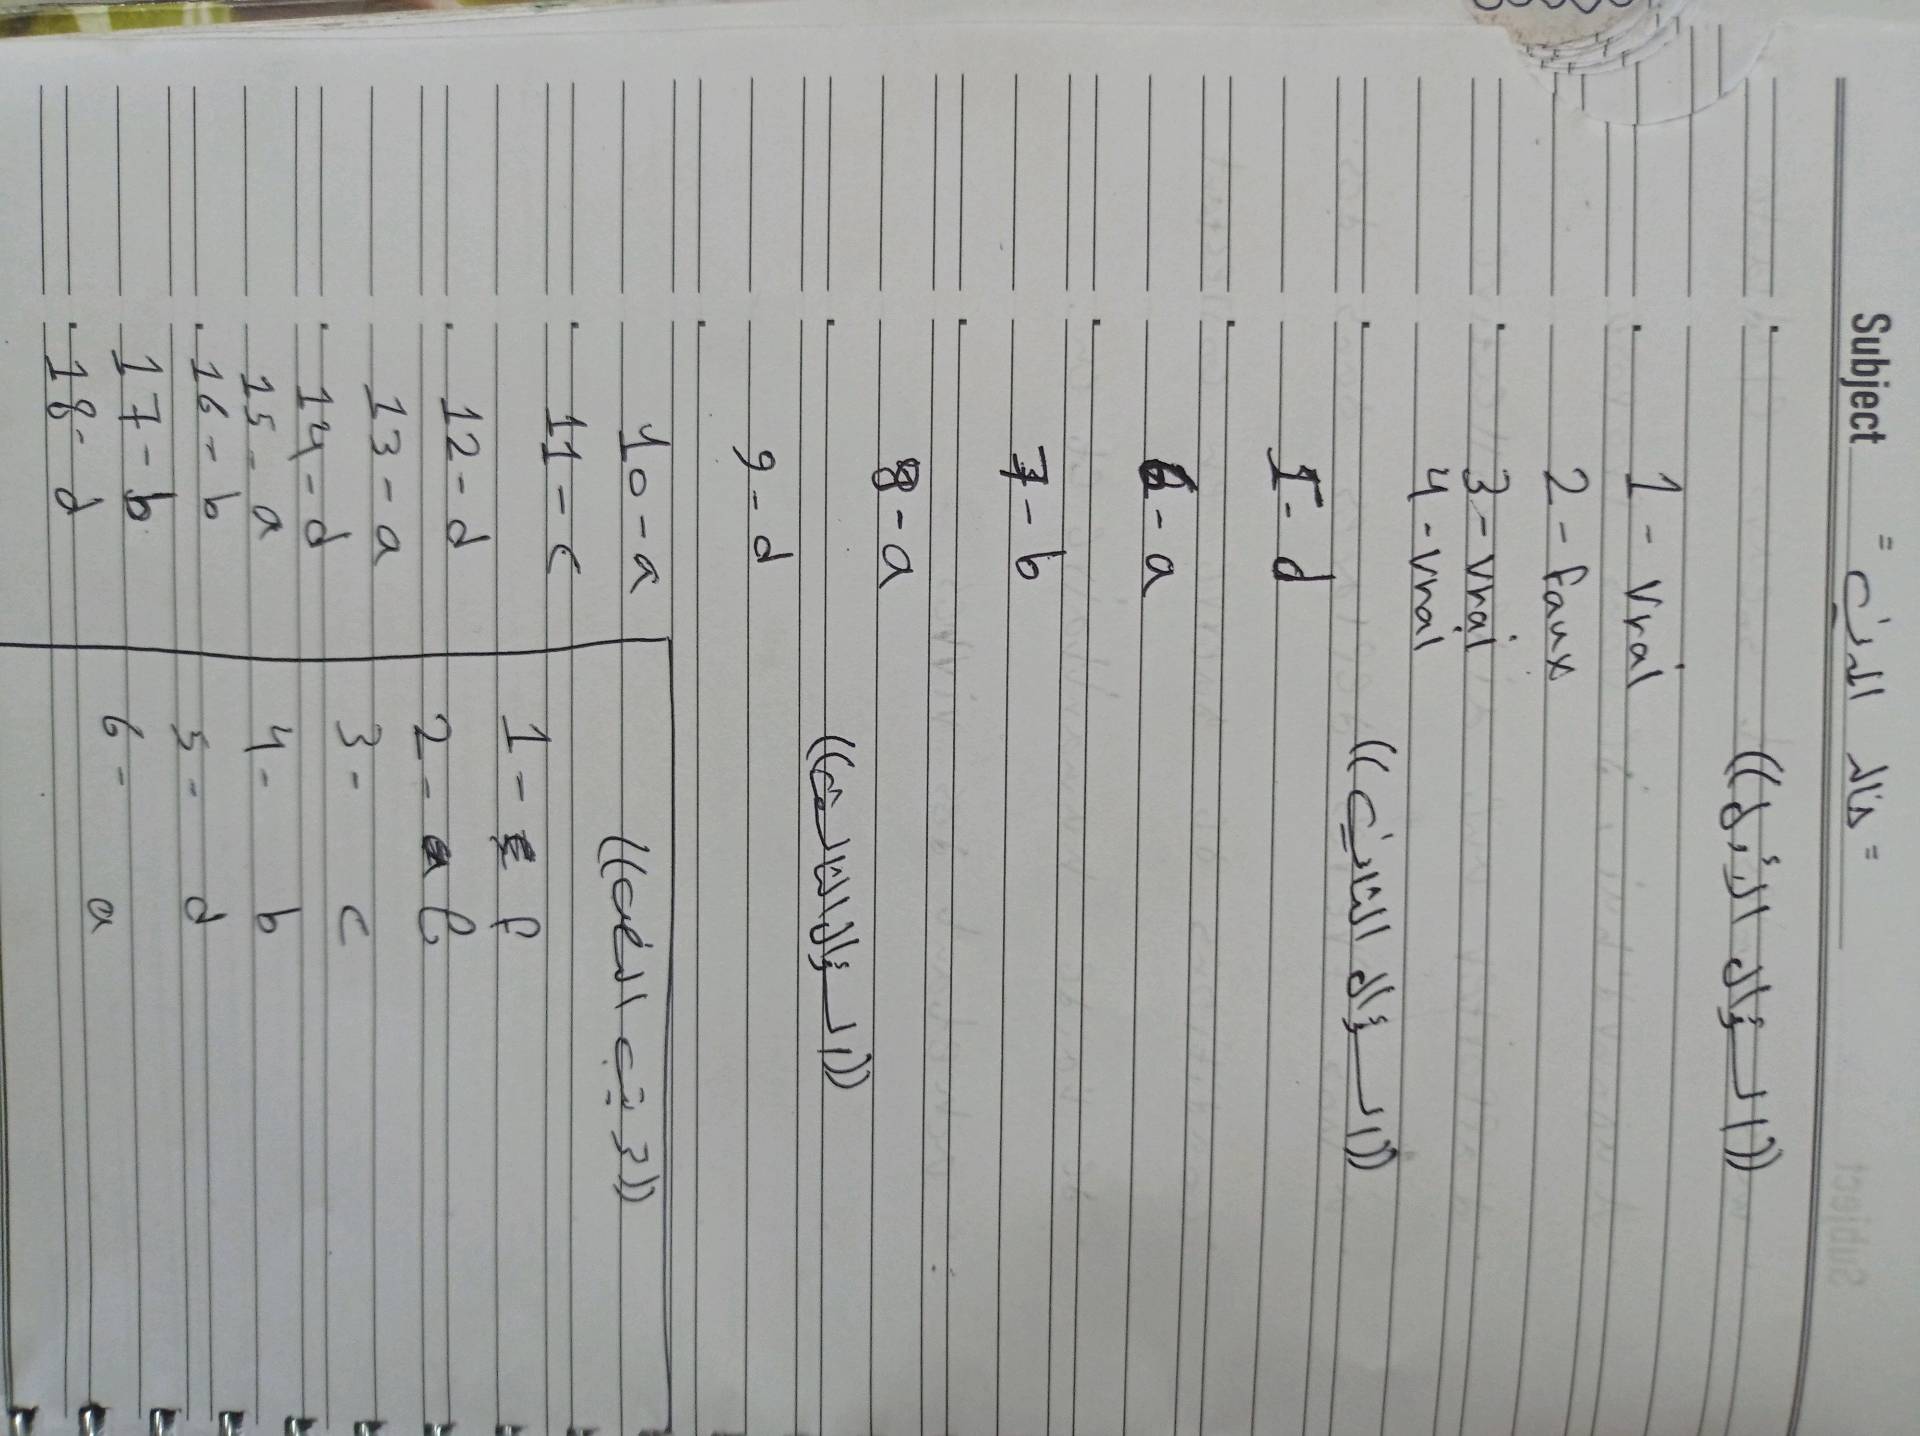 Subject = خالد الدرب =
((السؤال الأول))
1 - Vrai
2 - faux
3 - vrai
4 - vrai
((السؤال الثاني))
5 - d
6 - a
7 - b
8 - a
((السؤال الثالث))
9 - d
10 - a
11 - c
12 - d
13 - a
14 - d
15 - a
16 - b
17 - b
18 - d
1 - f
2 - e
3 - c
4 - b
5 - d
6 - a